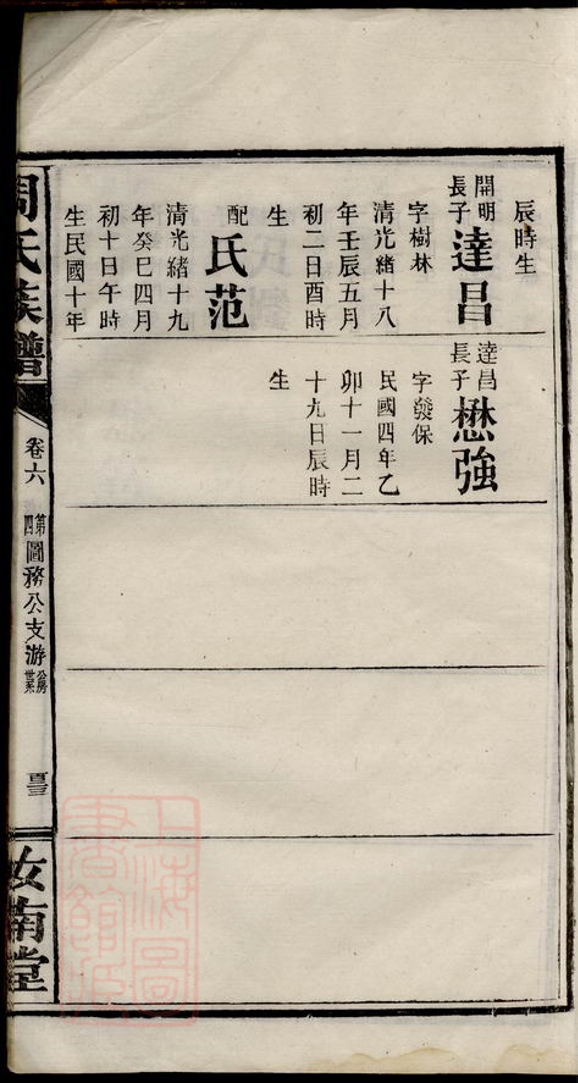 辰時生
開明
長子
達昌
字樹林
清光緒十八
年壬辰五月
初二日酉時
生
配
氏范
清光緒十九
年癸巳四月
初十日午時
生民國十年
達昌
長子
懋強
字發保
民國四年乙
卯十一月二
十九日辰時
生
周氏族譜
卷六
第四圖務公支游
汝南堂
上海圖書館藏